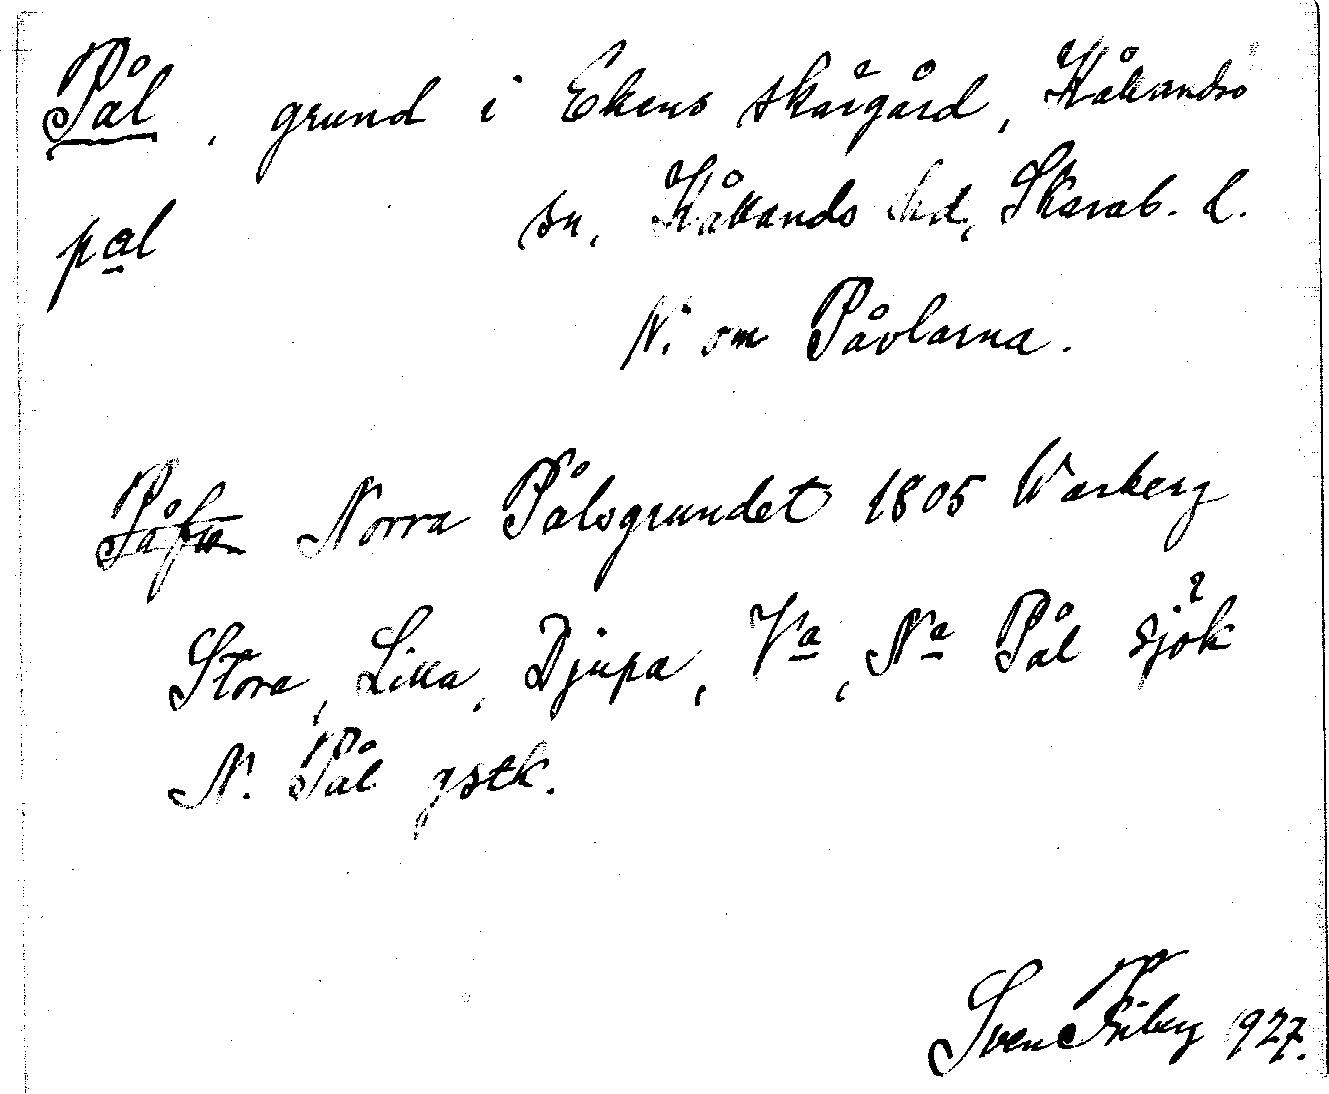 Pål, grund i Ekens skärgård, Kållandsö
pal sn, Kållands hd, Skarab. l.
N. om Påvlarna.
Norra Pålsgrundet 1805 Warberg
Stora, Lilla, Djupa, Va, Na Pål sjök
N. Pål gstk.
Sven Friberg 1927.